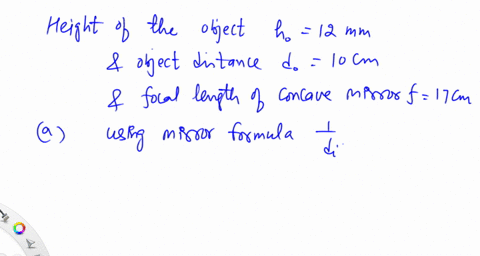 Height of the object h₀ = 12 mm
& object distance d₀ = 10 cm
& focal length of concave mirror f = 17 cm
(a) using mirror formula 1/di